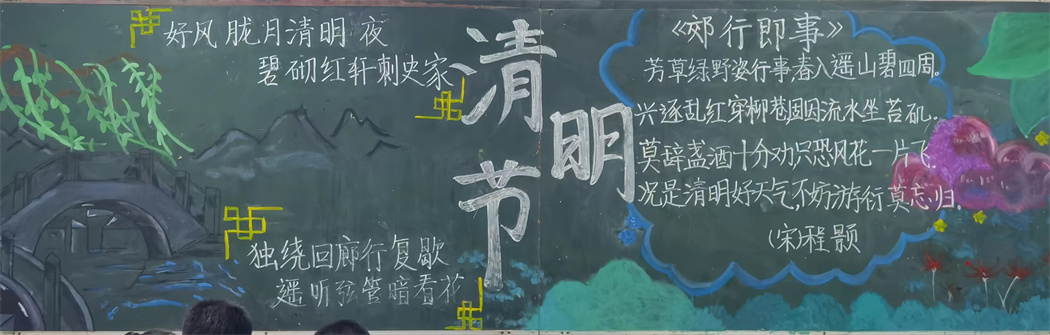 好风胧月清明夜
碧砌红轩刺史家
独绕回廊行复歇
遥听弦管暗看花
清明节
《郊行即事》
芳草绿野姿行事春入遥山碧四周。
兴逐乱红穿柳巷困因流水坐苔矶.
莫辞盏酒十分劝只恐风花一片飞.
况是清明好天气,不妨游衍莫忘归.
(宋)程颢